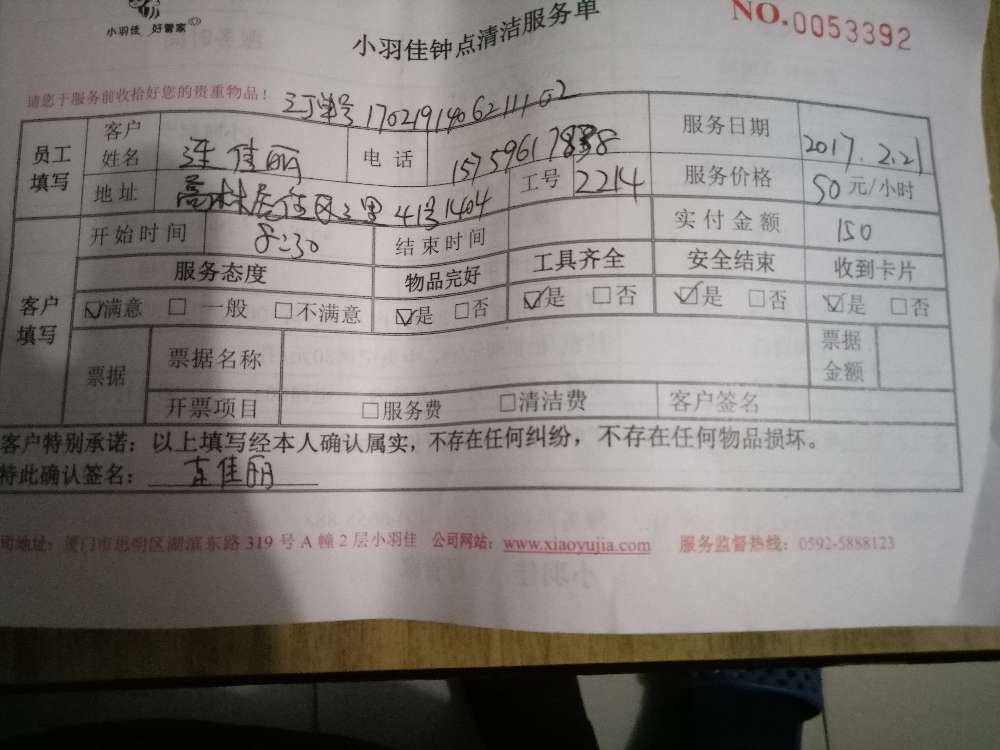 小羽佳 好管家
小羽佳钟点清洁服务单
NO.0053392
请您于服务前收拾好您的贵重物品！
订单号 17021914062111102
员工填写 客户姓名 连佳丽 电话 15759617838 服务日期 2017.2.21
地址 高林居住区三里41号1404 工号 2214 服务价格 50元/小时
客户填写 开始时间 8:30 结束时间 实付金额 150
服务态度 物品完好 工具齐全 安全结束 收到卡片
☑满意 □一般 □不满意 ☑是 □否 ☑是 □否 ☑是 □否 ☑是 □否
票据 票据名称 票据金额
开票项目 □服务费 □清洁费 客户签名
客户特别承诺：以上填写经本人确认属实，不存在任何纠纷，不存在任何物品损坏。
特此确认签名：连佳丽
司地址：厦门市思明区湖滨东路319号A幢2层小羽佳 公司网站：www.xiaoyujia.com 服务监督热线：0592-5888123